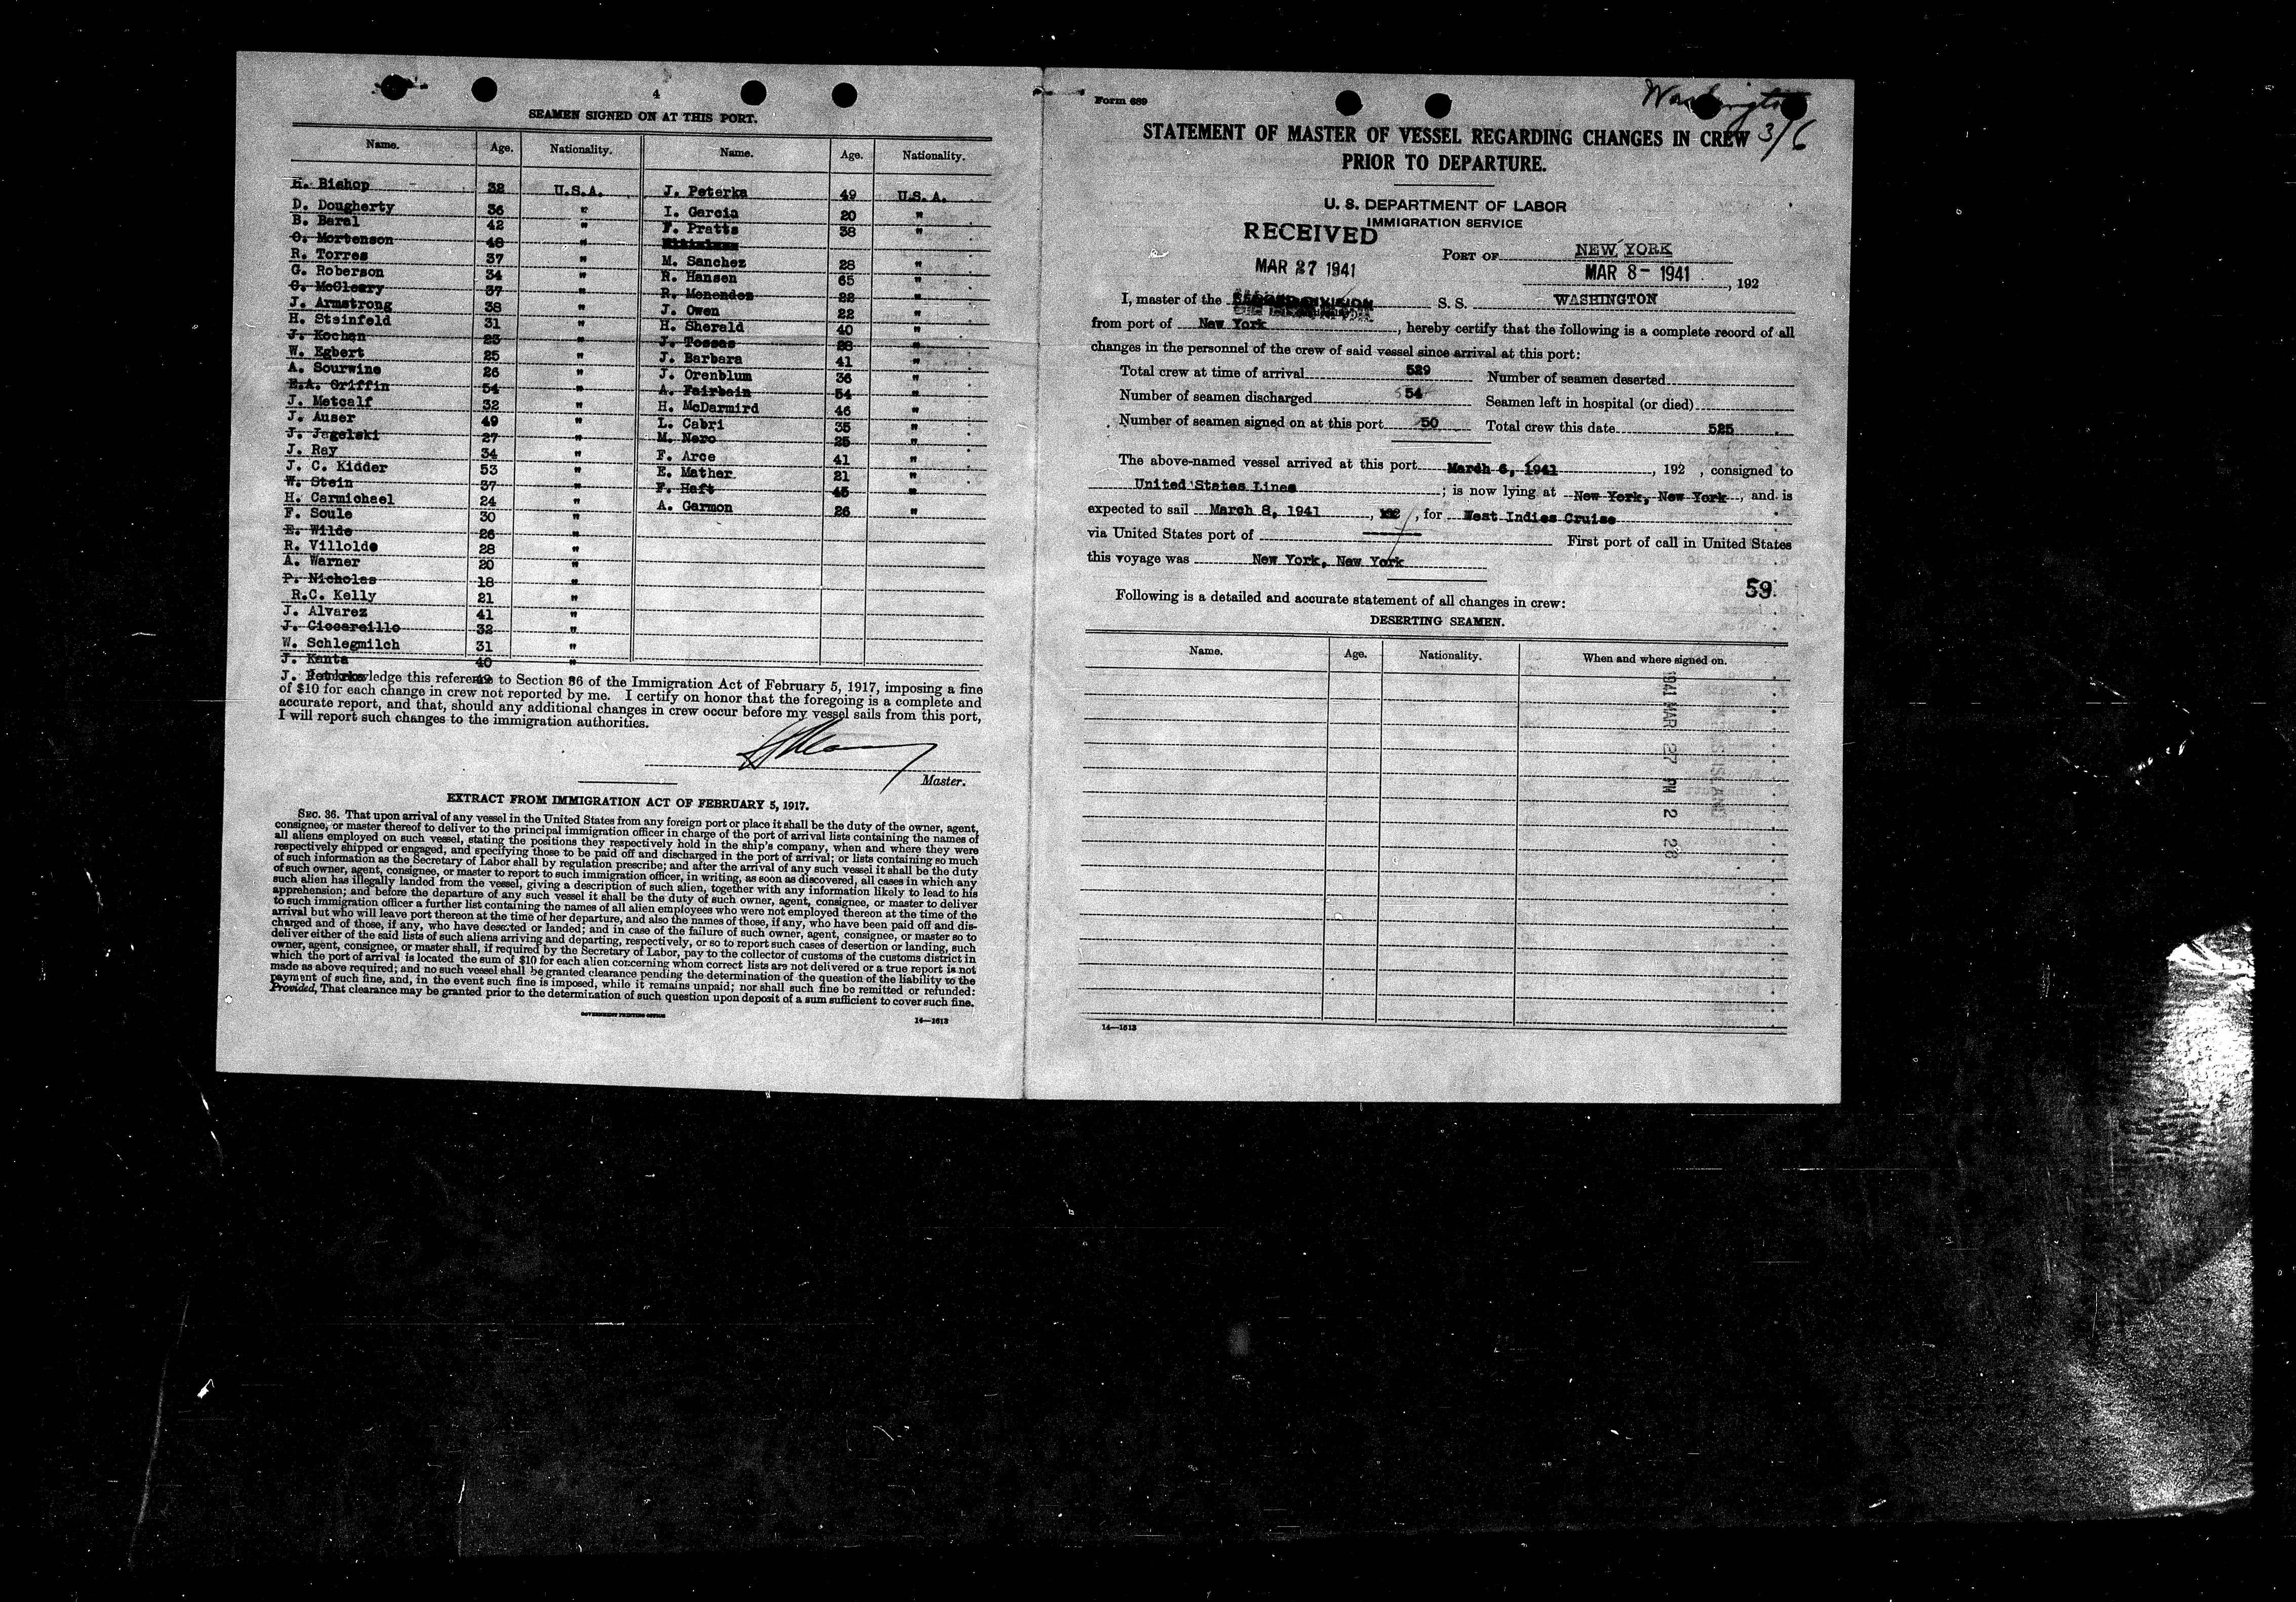 4
SEAMEN SIGNED ON AT THIS PORT.
Name. Age. Nationality. Name. Age. Nationality.
H. Bishop 32 U.S.A. J. Peterka 49 U.S.A.
D. Dougherty 36 " I. Garcia 20 "
B. Baral 42 " F. Pratts 38 "
O. Mortenson 48 "
R. Torres 37 " M. Sanchez 28 "
G. Roberson 34 " R. Hansen 65 "
C. McCleary 37 " R. Menendez 22 "
J. Armstrong 38 " J. Owen 22 "
H. Steinfeld 31 " H. Sherald 40 "
J. Kochan 23 " J. Tossas 28 "
W. Egbert 25 " J. Barbara 41 "
A. Sourwine 26 " J. Orenblum 36 "
E.A. Griffin 54 " A. Fairbain 54 "
J. Metcalf 32 " H. McDarmird 46 "
J. Auser 49 " L. Cabri 35 "
J. Jagelski 27 " M. Nero 25 "
J. Ray 34 " F. Arce 41 "
J. C. Kidder 53 " E. Mather 21 "
W. Stein 37 " F. Haft 45 "
H. Carmichael 24 " A. Garmon 26 "
F. Soule 30 "
E. Wilde 26 "
R. Villolde 28 "
A. Warner 20 "
P. Nicholas 18 "
R.C. Kelly 21 "
J. Alvarez 41 "
J. Ciccareillo 32 "
W. Schlegmilch 31 "
J. Kanta 40 "
J. Peterka 49 "
I acknowledge this reference to Section 36 of the Immigration Act of February 5, 1917, imposing a fine
of $10 for each change in crew not reported by me. I certify on honor that the foregoing is a complete and
accurate report, and that, should any additional changes in crew occur before my vessel sails from this port,
I will report such changes to the immigration authorities.
Master.
EXTRACT FROM IMMIGRATION ACT OF FEBRUARY 5, 1917.
SEC. 36. That upon arrival of any vessel in the United States from any foreign port or place it shall be the duty of the owner, agent,
consignee, or master thereof to deliver to the principal immigration officer in charge of the port of arrival lists containing the names of
all aliens employed on such vessel, stating the positions they respectively hold in the ship's company, when and where they were
respectively shipped or engaged, and specifying those to be paid off and discharged in the port of arrival; or lists containing so much
of such information as the Secretary of Labor shall by regulation prescribe; and after the arrival of any such vessel it shall be the duty
of such owner, agent, consignee, or master to report to such immigration officer, in writing, as soon as discovered, all cases in which any
such alien has illegally landed from the vessel, giving a description of such alien, together with any information likely to lead to his
apprehension; and before the departure of any such vessel it shall be the duty of such owner, agent, consignee, or master to deliver
to such immigration officer a further list containing the names of all alien employees who were not employed thereon at the time of the
arrival but who will leave port thereon at the time of her departure, and also the names of those, if any, who have been paid off and dis-
charged and of those, if any, who have deserted or landed; and in case of the failure of such owner, agent, consignee, or master so to
deliver either of the said lists of such aliens arriving and departing, respectively, or so to report such cases of desertion or landing, such
owner, agent, consignee, or master shall, if required by the Secretary of Labor, pay to the collector of customs of the customs district in
which the port of arrival is located the sum of $10 for each alien concerning whom correct lists are not delivered or a true report is not
made as above required; and no such vessel shall be granted clearance pending the determination of the question of the liability to the
payment of such fine, and, in the event such fine is imposed, while it remains unpaid; nor shall such fine be remitted or refunded:
Provided, That clearance may be granted prior to the determination of such question upon deposit of a sum sufficient to cover such fine.
GOVERNMENT PRINTING OFFICE
14—1613
Form 689
Washington
3/6
STATEMENT OF MASTER OF VESSEL REGARDING CHANGES IN CREW
PRIOR TO DEPARTURE.
U. S. DEPARTMENT OF LABOR
IMMIGRATION SERVICE
RECEIVED
MAR 27 1941
PORT OF NEW YORK
MAR 8 - 1941, 192
I, master of the S. S. WASHINGTON
from port of New York, hereby certify that the following is a complete record of all
changes in the personnel of the crew of said vessel since arrival at this port:
Total crew at time of arrival 529 Number of seamen deserted
Number of seamen discharged 54 Seamen left in hospital (or died)
Number of seamen signed on at this port 50 Total crew this date 525
The above-named vessel arrived at this port March 6, 1941, 192 , consigned to
United States Lines; is now lying at New York, New York, and is
expected to sail March 8, 1941, 192 , for West Indies Cruise
via United States port of First port of call in United States
this voyage was New York, New York
59
Following is a detailed and accurate statement of all changes in crew:
DESERTING SEAMEN.
Name. Age. Nationality. When and where signed on.
1941 MAR 27 PM 2 28
14—1613